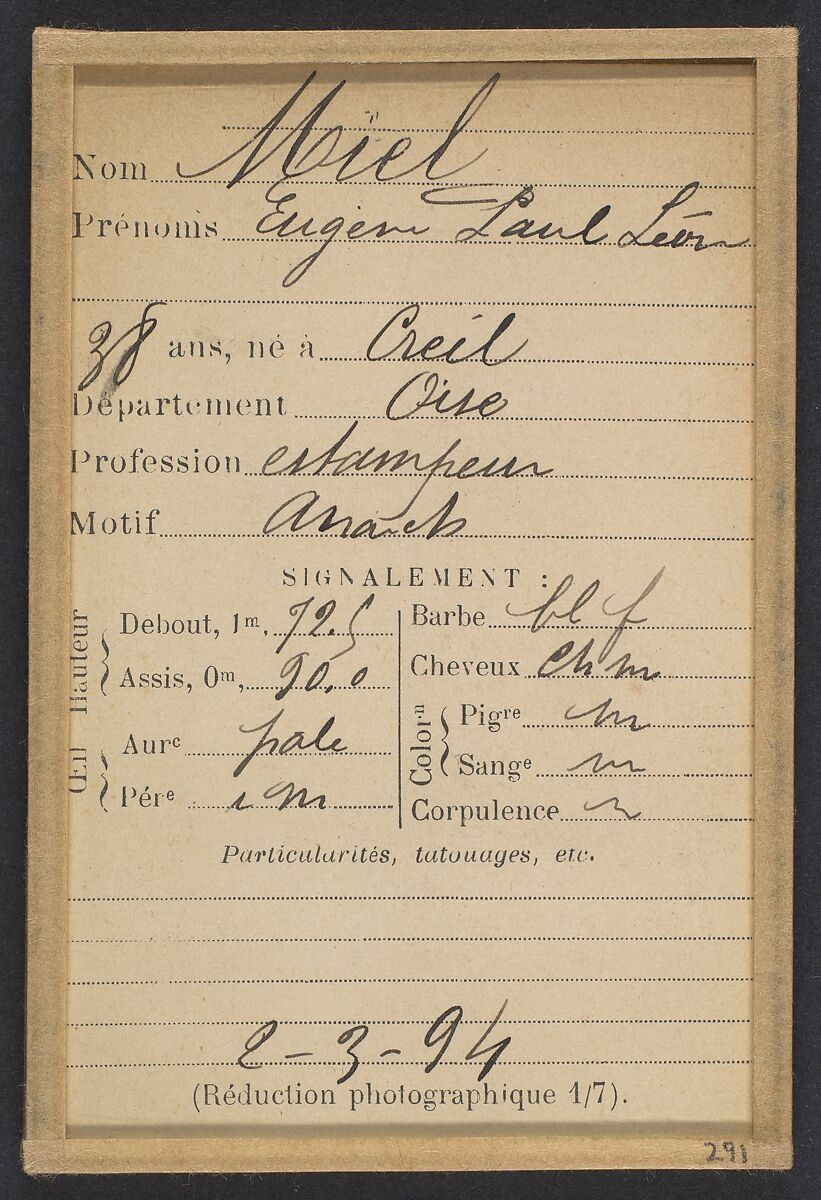 Nom Miel
Prénoms Eugène Paul Léon
38 ans, né à Creil
Département Oise
Profession estampeur
Motif Anarch
SIGNALEMENT :
Hauteur
Debout, 1m, 72.5
Assis, 0m, 90,0
Œil
Aurᶜ pale
Pérᵉ i m
Barbe bl f
Cheveux ch m
Colorⁿ
Pigʳᵉ m
Sangᵉ m
Corpulence m
Particularités, tatouages, etc.
2-3-94
(Réduction photographique 1/7).
291